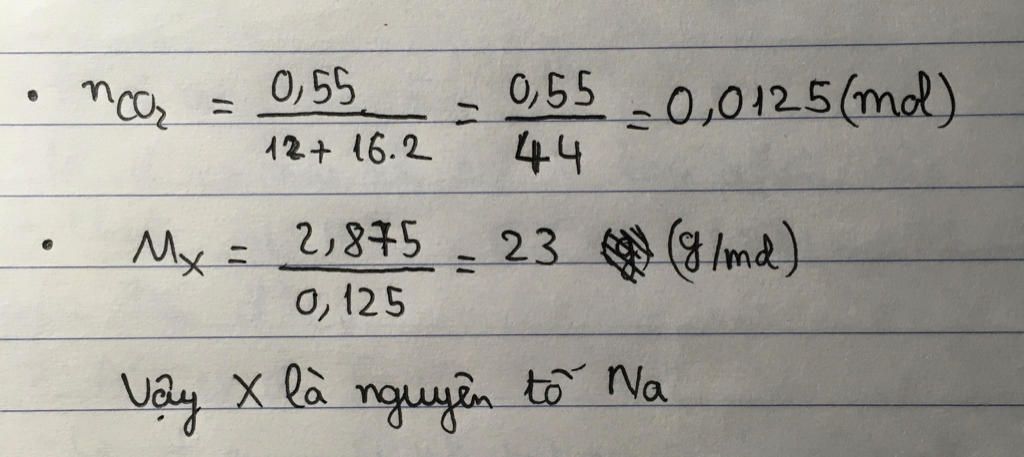 • nCO₂ = 0,55 / 12 + 16.2 = 0,55 / 44 = 0,0125 (mol)
• Mx = 2,875 / 0,125 = 23 (g/mol)
Vậy X là nguyên tố Na